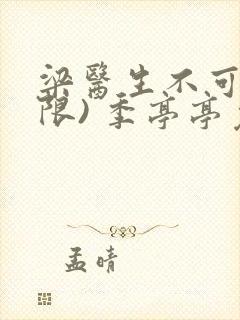 梁醫生不可
限) 季亭亭
孟晴